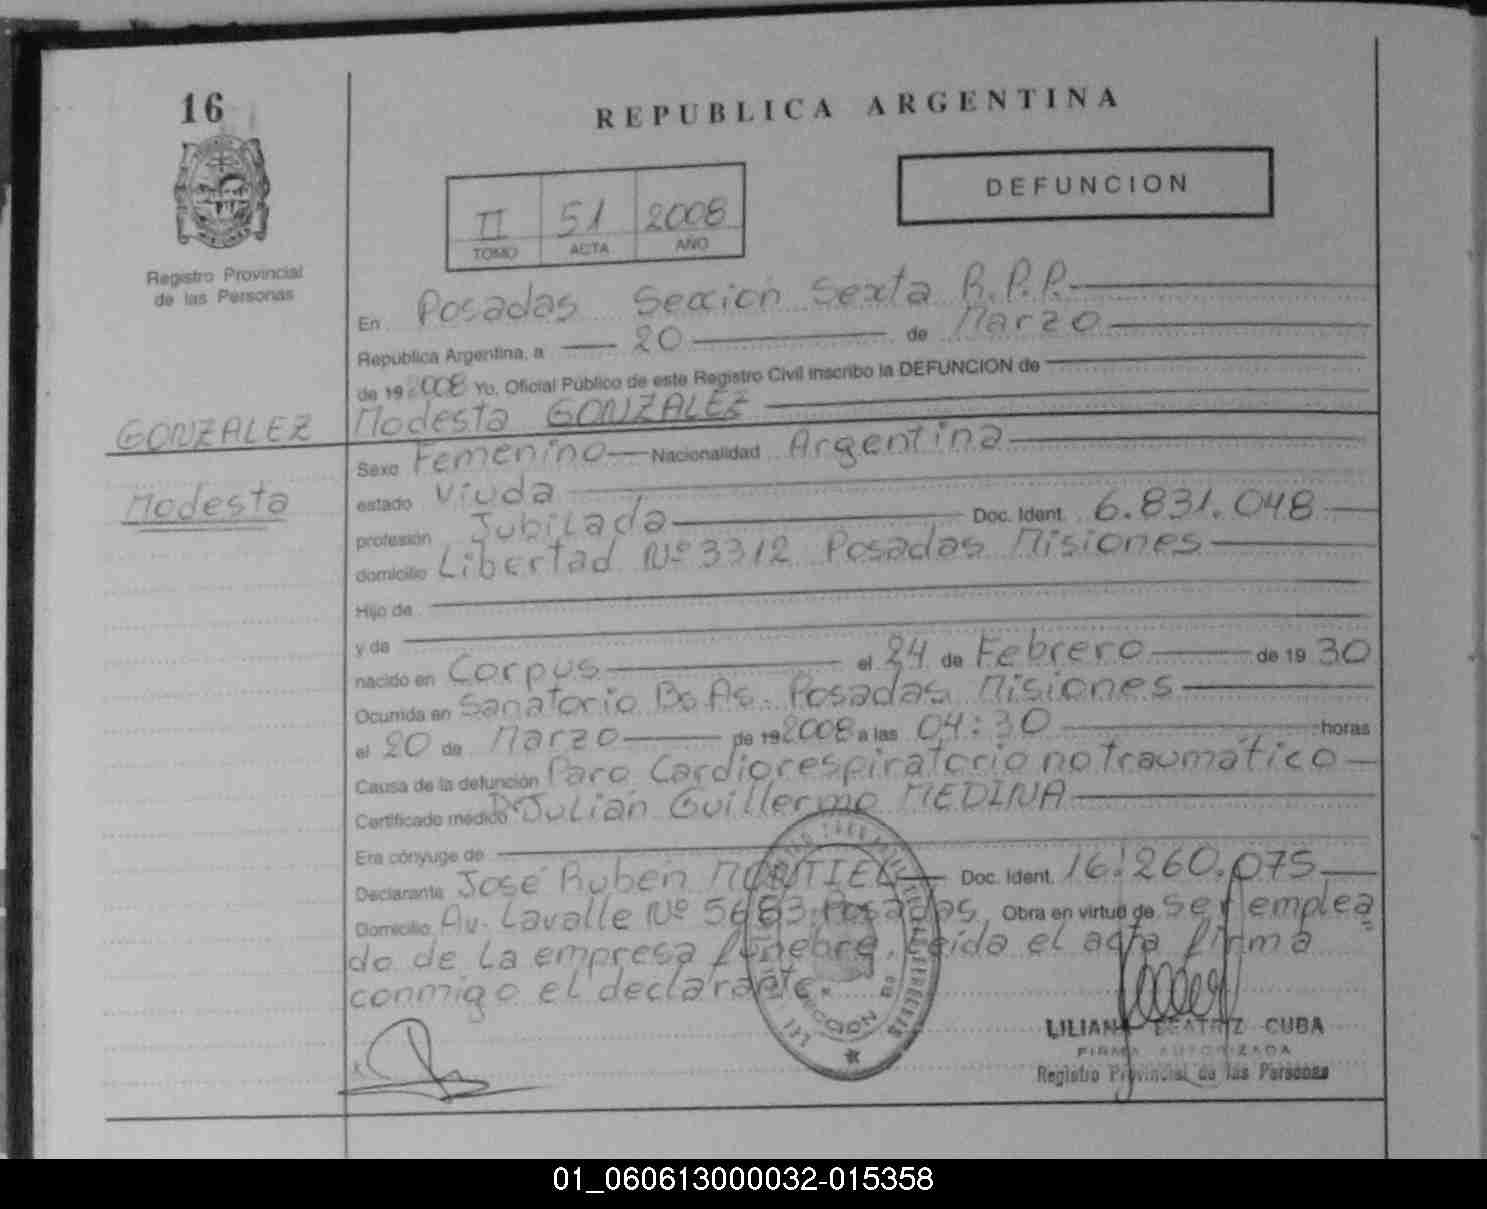 16
REPUBLICA ARGENTINA
DEFUNCION
II 51 2008
TOMO ACTA AÑO
Registro Provincial
de las Personas
En Posadas Sección Sexta R.P.P.
República Argentina, a 20 de Marzo
de 19 2008 Yo, Oficial Público de este Registro Civil inscribo la DEFUNCION de
GONZALEZ Modesta GONZALEZ
Sexo Femenino Nacionalidad Argentina
Modesta
estado Viuda
profesión Jubilada Doc. Ident. 6.831.048
domicilio Libertad Nº 3312 Posadas Misiones
Hijo de
y de
nacido en Corpus el 24 de Febrero de 19 30
Ocurrida en Sanatorio Bs As. Posadas Misiones
el 20 de Marzo de 19 2008 a las 04:30 horas
Causa de la defunción Paro Cardiorespiratorio no traumático
Certificado médico Dr Julián Guillermo MEDINA
Era cónyuge de
Declarante José Ruben MONTIEL Doc. Ident. 16.260.075
Domicilio Av. Lavalle Nº 5683 Posadas Obra en virtud de Ser emplea
do de la empresa fúnebre. Leída el acta firma
conmigo el declarante.
LILIANA BEATRIZ CUBA
FIRMA AUTORIZADA
Registro Provincial de las Personas
01_060613000032-015358